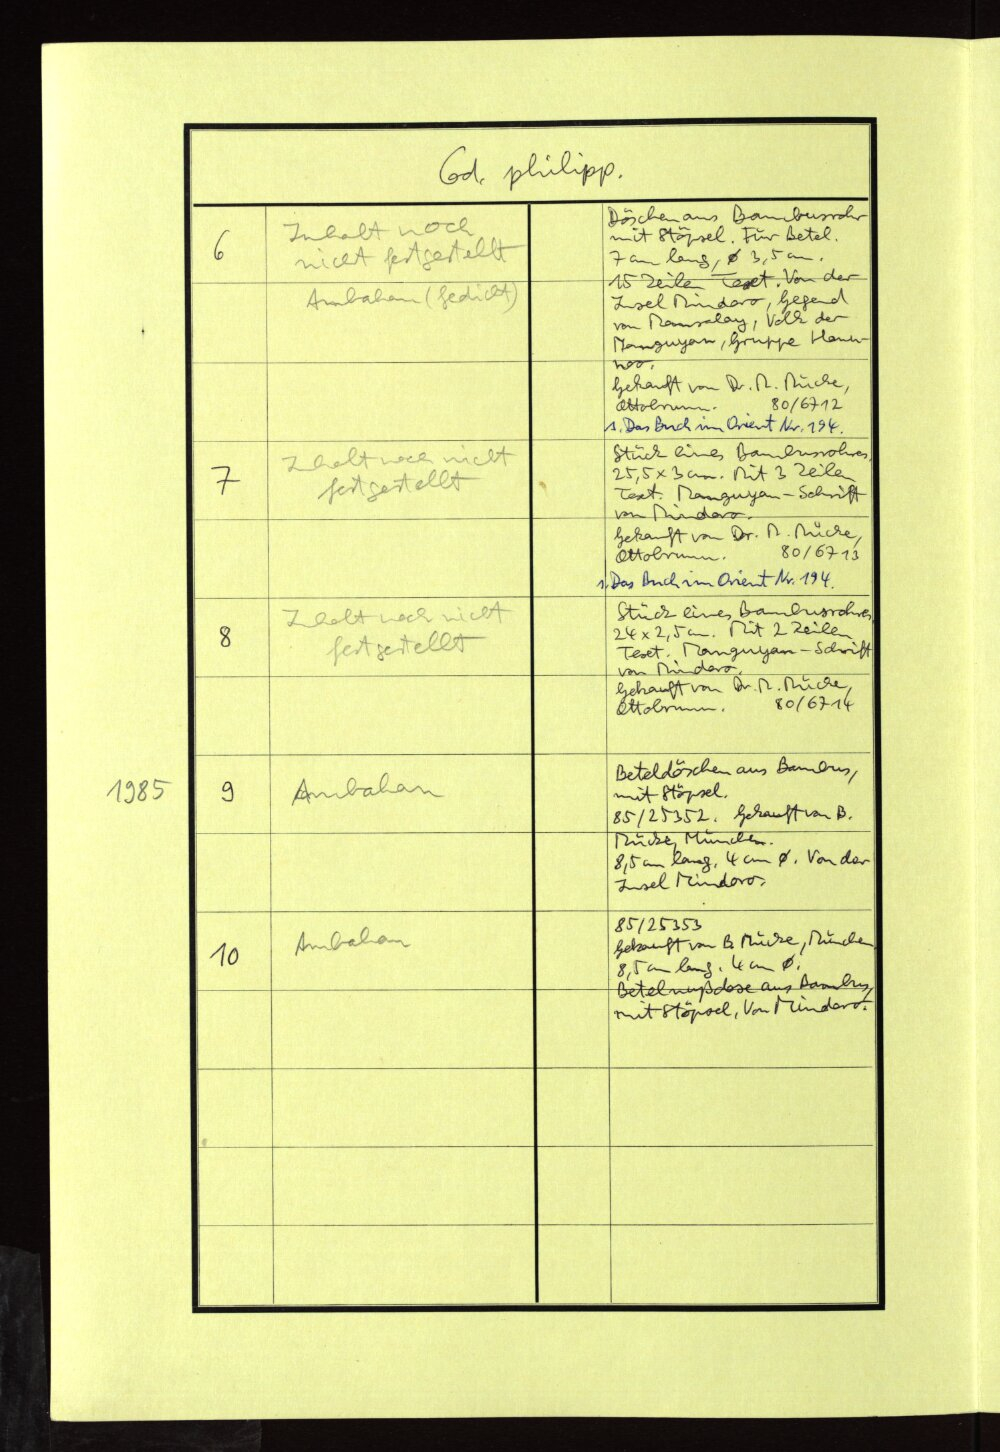 Cod. philipp.
6
Inhalt noch
nicht festgestellt
Ambahan (Gedicht)
Döschen aus Bambusrohr
mit Stöpsel. Für Betel.
7 cm lang, ø 3,5 cm.
15 Zeilen Text. Von der
Insel Mindoro, Gegend
von Mansalay, Volk der
Manguyan, Gruppe Hanu-
noo.
Gekauft von Dr. M. Mücke,
Ottobrunn. 80/6712
s. Das Buch im Orient Nr. 194.
7
Inhalt noch nicht
festgestellt
Stück eines Bambusrohres,
25,5 x 3 cm. Mit 3 Zeilen
Text. Manguyan-Schrift
von Mindoro.
Gekauft von Dr. M. Mücke,
Ottobrunn. 80/6713
s. Das Buch im Orient Nr. 194.
8
Inhalt noch nicht
festgestellt
Stück eines Bambusrohres,
24 x 2,5 cm. Mit 2 Zeilen
Text. Manguyan-Schrift
von Mindoro.
Gekauft von Dr. M. Mücke,
Ottobrunn. 80/6714
1985
9
Ambahan
Beteldöschen aus Bambus,
mit Stöpsel.
85/25352. Gekauft von B.
Mücke, München.
8,5 cm lang, 4 cm ø. Von der
Insel Mindoro.
10
Ambahan
85/25353
Gekauft von B. Mücke, München
8,5 cm lang, 4 cm ø.
Betelnußdose aus Bambus,
mit Stöpsel, Von Mindoro.